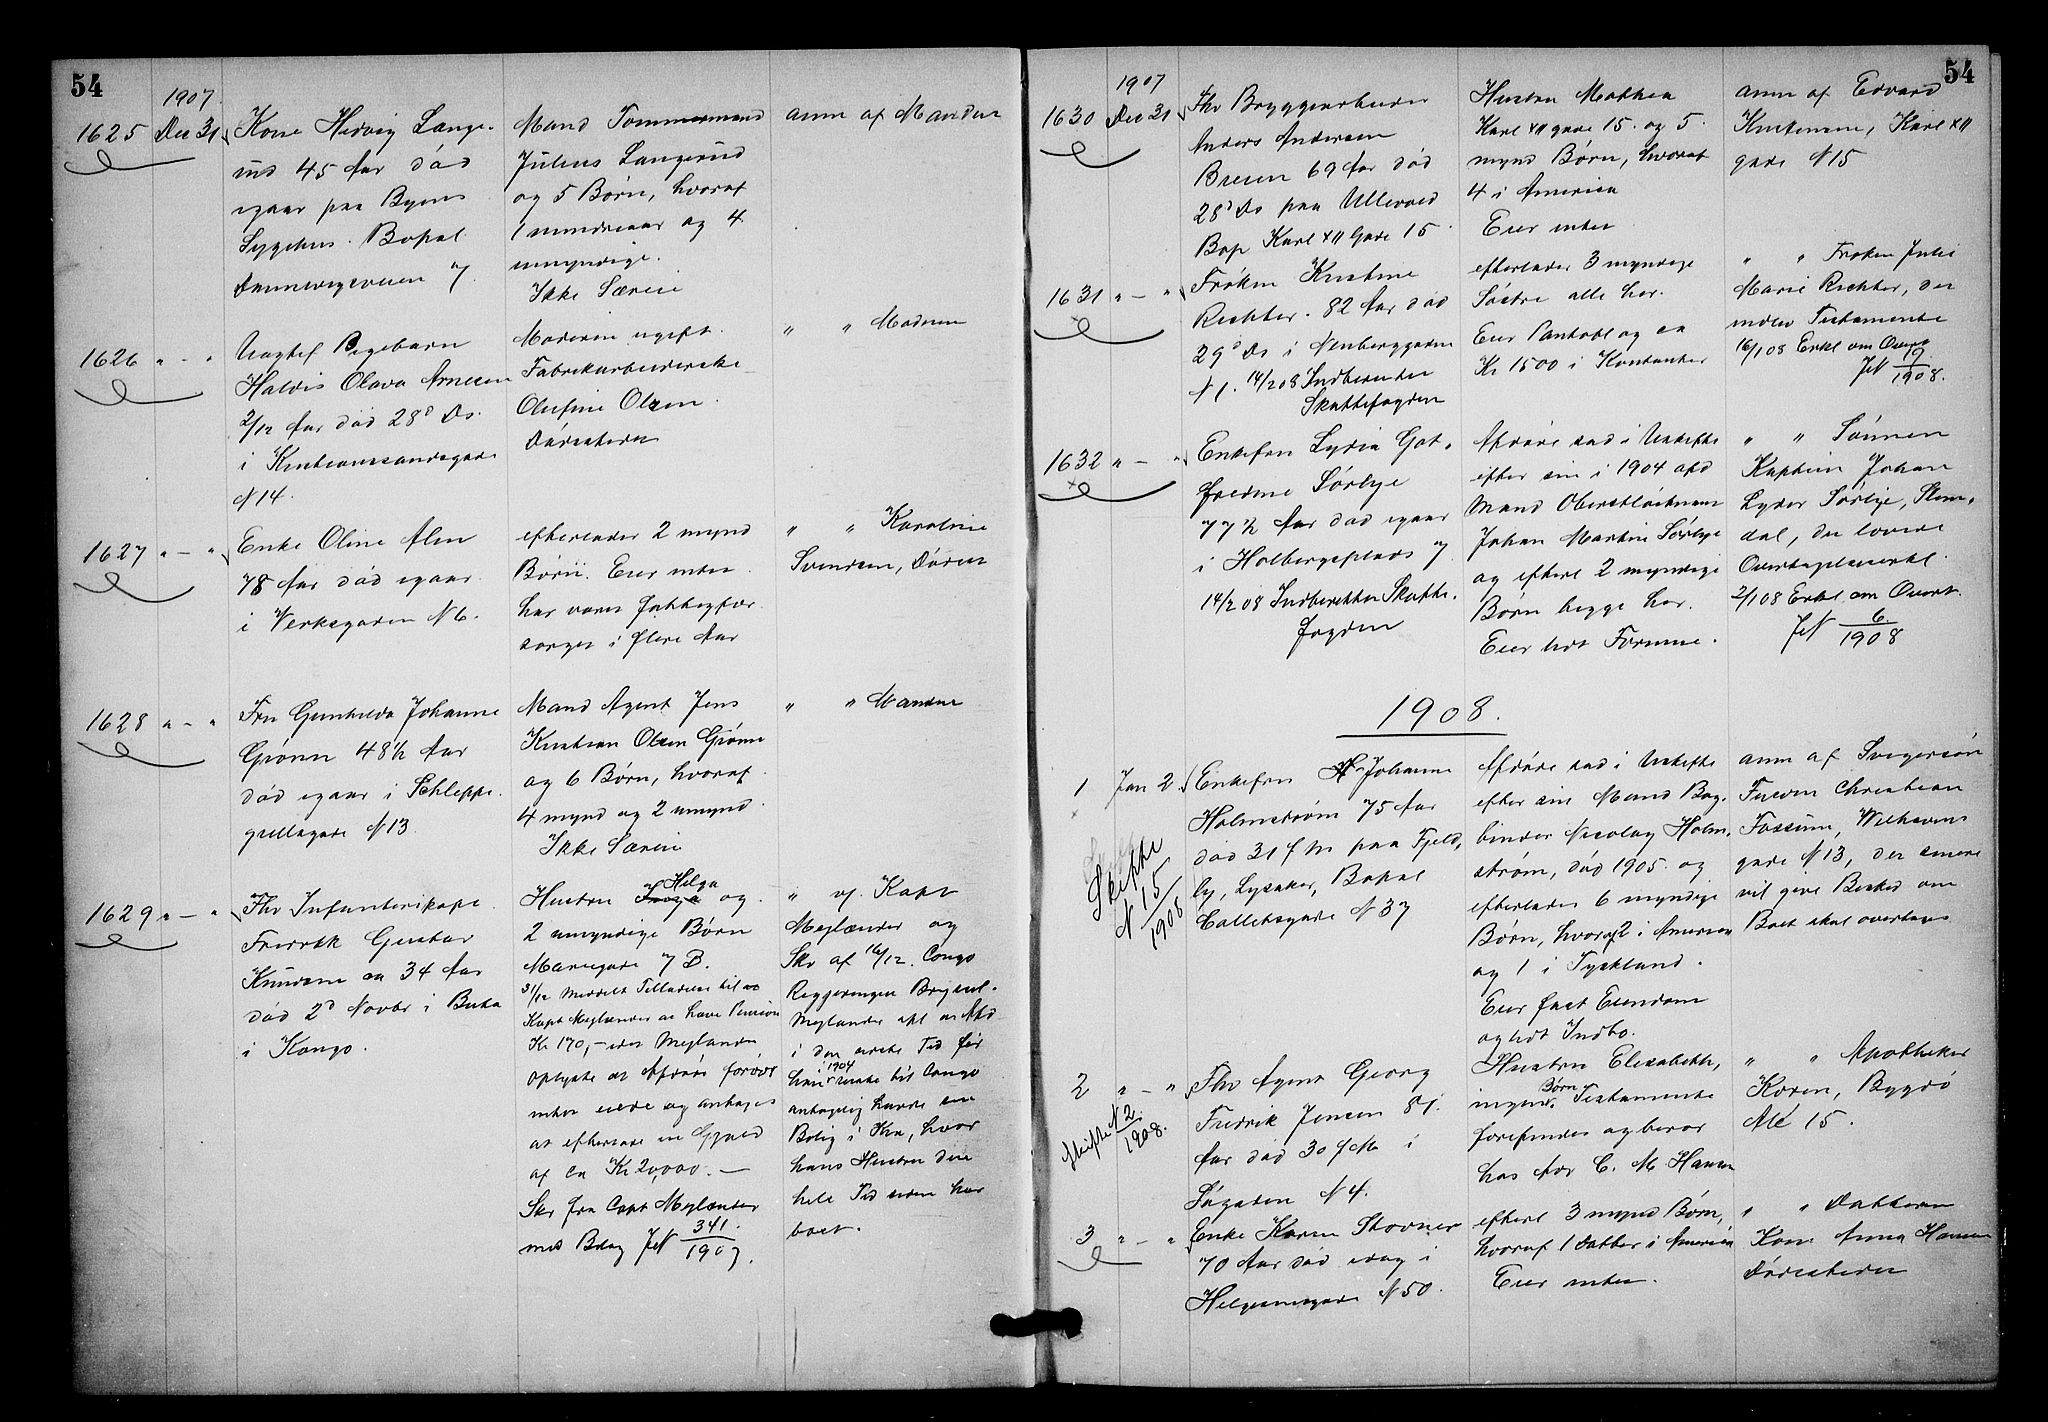 54
1907
1625 Dec 31
Kone Hedvig Lange-
rud 45 Aar død
igaar paa Byens
Sygehus. Bopæl
Danmarksveien 7
Mand Tømmermand
Julius Langerud
og 5 Børn, hvoraf
1 mindreaar og 4
umyndige.
Ikke Særeie
anm af Manden
1626 " - "
Uægte Pigebarn
Haldis Olava Arnesen
2/12 Aar død 28d Ds.
i Kristianssandsgade
N 14.
Moderen ugift
Fabrikarbeiderske
Olufine Olsen.
Dårestuen
" " Moderen
1627 " - "
Enke Oline Alm
78 Aar død igaar
i Verksgaden N 6.
efterlader 2 mynd
Børn. Eier intet
har været fattigfor-
sørget i flere Aar
" " Karoline
Svendsen,
1628 " - "
Fru Gunhilda Johanne
Grønn 48½ Aar
død igaar i Schleppe-
grellsgade N 13.
Mand Agent Jens
Kristian Olsen Grønn
og 6 Børn, hvoraf
4 mynd og 2 umynd.
Ikke Særeie
" " Manden
1629 " - "
Fhv Infanterikapt.
Fredrik Gustav
Knudsen ca 34 Aar
død 2d Novbr i Buta
i Kongo.
Hustru Helga og
2 umyndige Børn
Mariegade 7 B.
31/12 Meddelt Tilladelse til
Kapt Mejlænder at hæve Pension
Kr 170,- idet Mejlænder
oplyste at Afdøde forøvr
intet eiede og antages
at efterlade en Gjæld
af ca Kr 20,000. -
Skr fra Capt Mejlænder
med Bilag JN 341/1907.
" v. Kapt
Mejlænder og
Skr af 16/12. Congo
Regjeringen Bryssel.
Mejlænder opl at Afd
i den første Tid før
han 1904 reiste til Congo
antagelig havde sin
Bolig i Kra, hvor
hans Hustru den
hele Tid siden har
boet.
54
1907
1630 Dec 31
Fhv Bryggearbeider
Anders Andersen
Bresen 69 Aar død
28d Ds paa Ullevold
Bop Karl XII Gade 15.
Hustru Mathea
Karl XII gade 15. og 5.
mynd Børn, hvoraf
4 i America
Eier intet
anm af Edvard
Kristensen, Karl XII
gade N 15
1631 " - "
Frøken Kristine
Richter. 82 Aar død
29d Ds i Nuberggaden
N 1. 14/2 08 Indberettet
Skattefogden
efterlader 3 myndige
Søstre alle her.
Eier Pantobl og ca
Kr 1500 i Kontanter
" " Frøken Julie
Marie Richter, der
indlev Testamente
16/1 08 Erkl om Overt
JN 19/1908.
1632 " - "
Enkefru Lydia Got-
fredine Sørbye
77½ Aar død igaar
i Holbergsplads 7
14/2 08 Indberettet Skatte-
fogden
Afdøde sad i Uskifte
efter sin i 1904 afd
Mand Oberstløitnant
Johan Martin Sørbye
og efterl 2 myndige
Børn begge her.
Eier lidt Formue.
" " Sønnen
Kaptein Johan
Lyder Sørbye, Slem-
dal, der lovede
Overtagelseserkl
2/1 08 Erkl om Overt.
JN 6/1908
1908.
1 Jan 2.
Skifte
N 15/1908
Enkefru Johanne
Holmstrøm 75 Aar
død 31 f M paa Fjeld,
ly, Lysaker, Bopæl
Colletsgade N 37
Afdøde sad i Uskifte
efter sin Mand Bog-
binder Nicolay Holm-
strøm, død 1905. og
efterlader 6 myndige
Børn, hvoraf 2 i America
og 1 i Tyskland.
Eier fast Eiendom
og lidt Indbo.
anm af Svigersøn
Christian
Fossum, Welhavens
gade N 13, der senere
vil give Besked om
Boet skal overtages
2 " - "
Skifte N 2./1908.
Fhv Agent Georg
Fredrik Jensen 81.
Aar død 30 f M i
Søgaden N 4.
Hustru Elisabeth,
ingen Børn. Testamente
forefindes og beror
hos Adv C. M. Hansen
" " Apotheker
Koren, Bygdø
Alle 15.
3 " - "
Enke Karen Stovner
70 Aar død idag i
Helgesensgade N 50.
efterl 3 mynd Børn,
hvoraf 1 Datter i America
Eier intet.
" " Datteren
Kone Anna Hansen